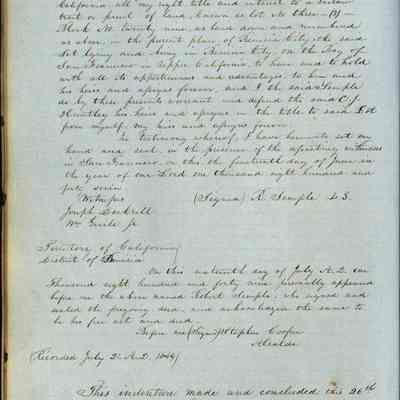 California, all my right title and interest to a certain
tract or parcel of land, known as Lot No three (3)
Block No twenty nine, as laid down and numbered
as above, in the present plan of Benicia City, the said
Lot lying and being in Benicia City, on the Bay of
San Francisco in Upper California, to have and to hold
with all its appurtenances and advantages, to him and
his heirs and assigns forever, and I the said Semple
do by these presents warrant and defend the said C. J.
his heirs and assigns in the title to said Lot
from myself, my heirs and assigns forever
In testimony whereof I have hereunto set my
hand and seal in the presence of the witnesses
in San Francisco on this the fourteenth day of June in
the year of our Lord one thousand eight hundred and
forty seven
Witness (Signed) R. Semple L S.
Joseph
Wm Jr
Territory of California
District of Benicia
On this day of July A.D. one
Thousand eight hundred and forty nine personally appeared
before me the above named Robert Semple, who signed and
sealed the foregoing deed, and acknowledges the same to
be his free act and deed.
Before me (Sign) Stephen Cooper
Alcalde
(Recorded July 2 A.D. 1849)
This indenture made and concluded this 26th